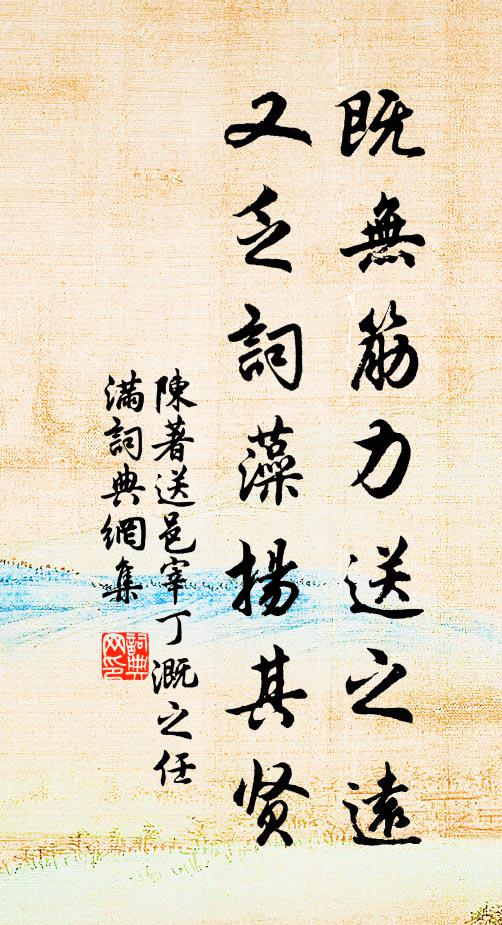 既無筋力送之遠
又乏詞藻揚其贤
陳著送邑宰丁溉之任
滿詞典網集
詞典網印